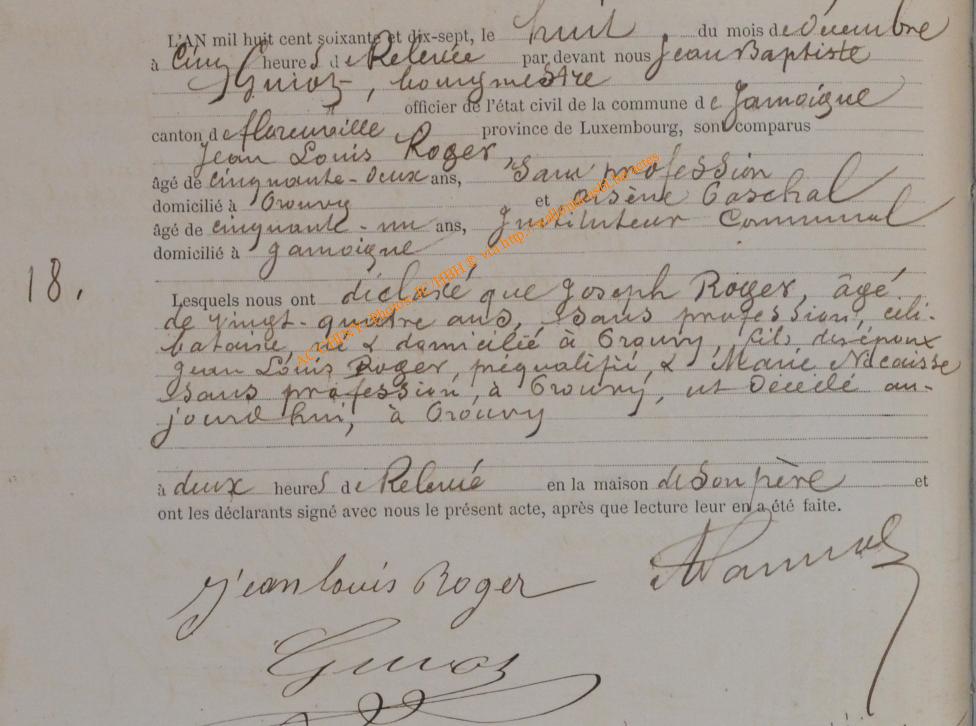 L'AN mil huit cent soixante et dix-sept, le huit du mois de décembre
à Cinq heures de Relevée par devant nous Jean Baptiste
Guiot, bourgmestre
officier de l'état civil de la commune de Jamoigne
canton de florenville province de Luxembourg, sont comparus
Jean Louis Roger,
âgé de cinquante-deux ans, Sans profession
domicilié à Prouvy et arsène
âgé de cinquante-un ans, Instituteur Communal
domicilié à Jamoigne
18.
Lesquels nous ont déclaré que Joseph Roger, âgé
de vingt-quatre ans, sans profession, céli-
bataire, né & domicilié à Prouvy, fils des époux
Jean Louis Roger, préqualifié, & Marie Nicaisse
Sans profession, à Prouvy, est Décédé au-
jourd'hui, à Prouvy
à deux heures de Relevée en la maison de Son père et
ont les déclarants signé avec nous le présent acte, après que lecture leur en a été faite.
jean louis Roger
Guiot